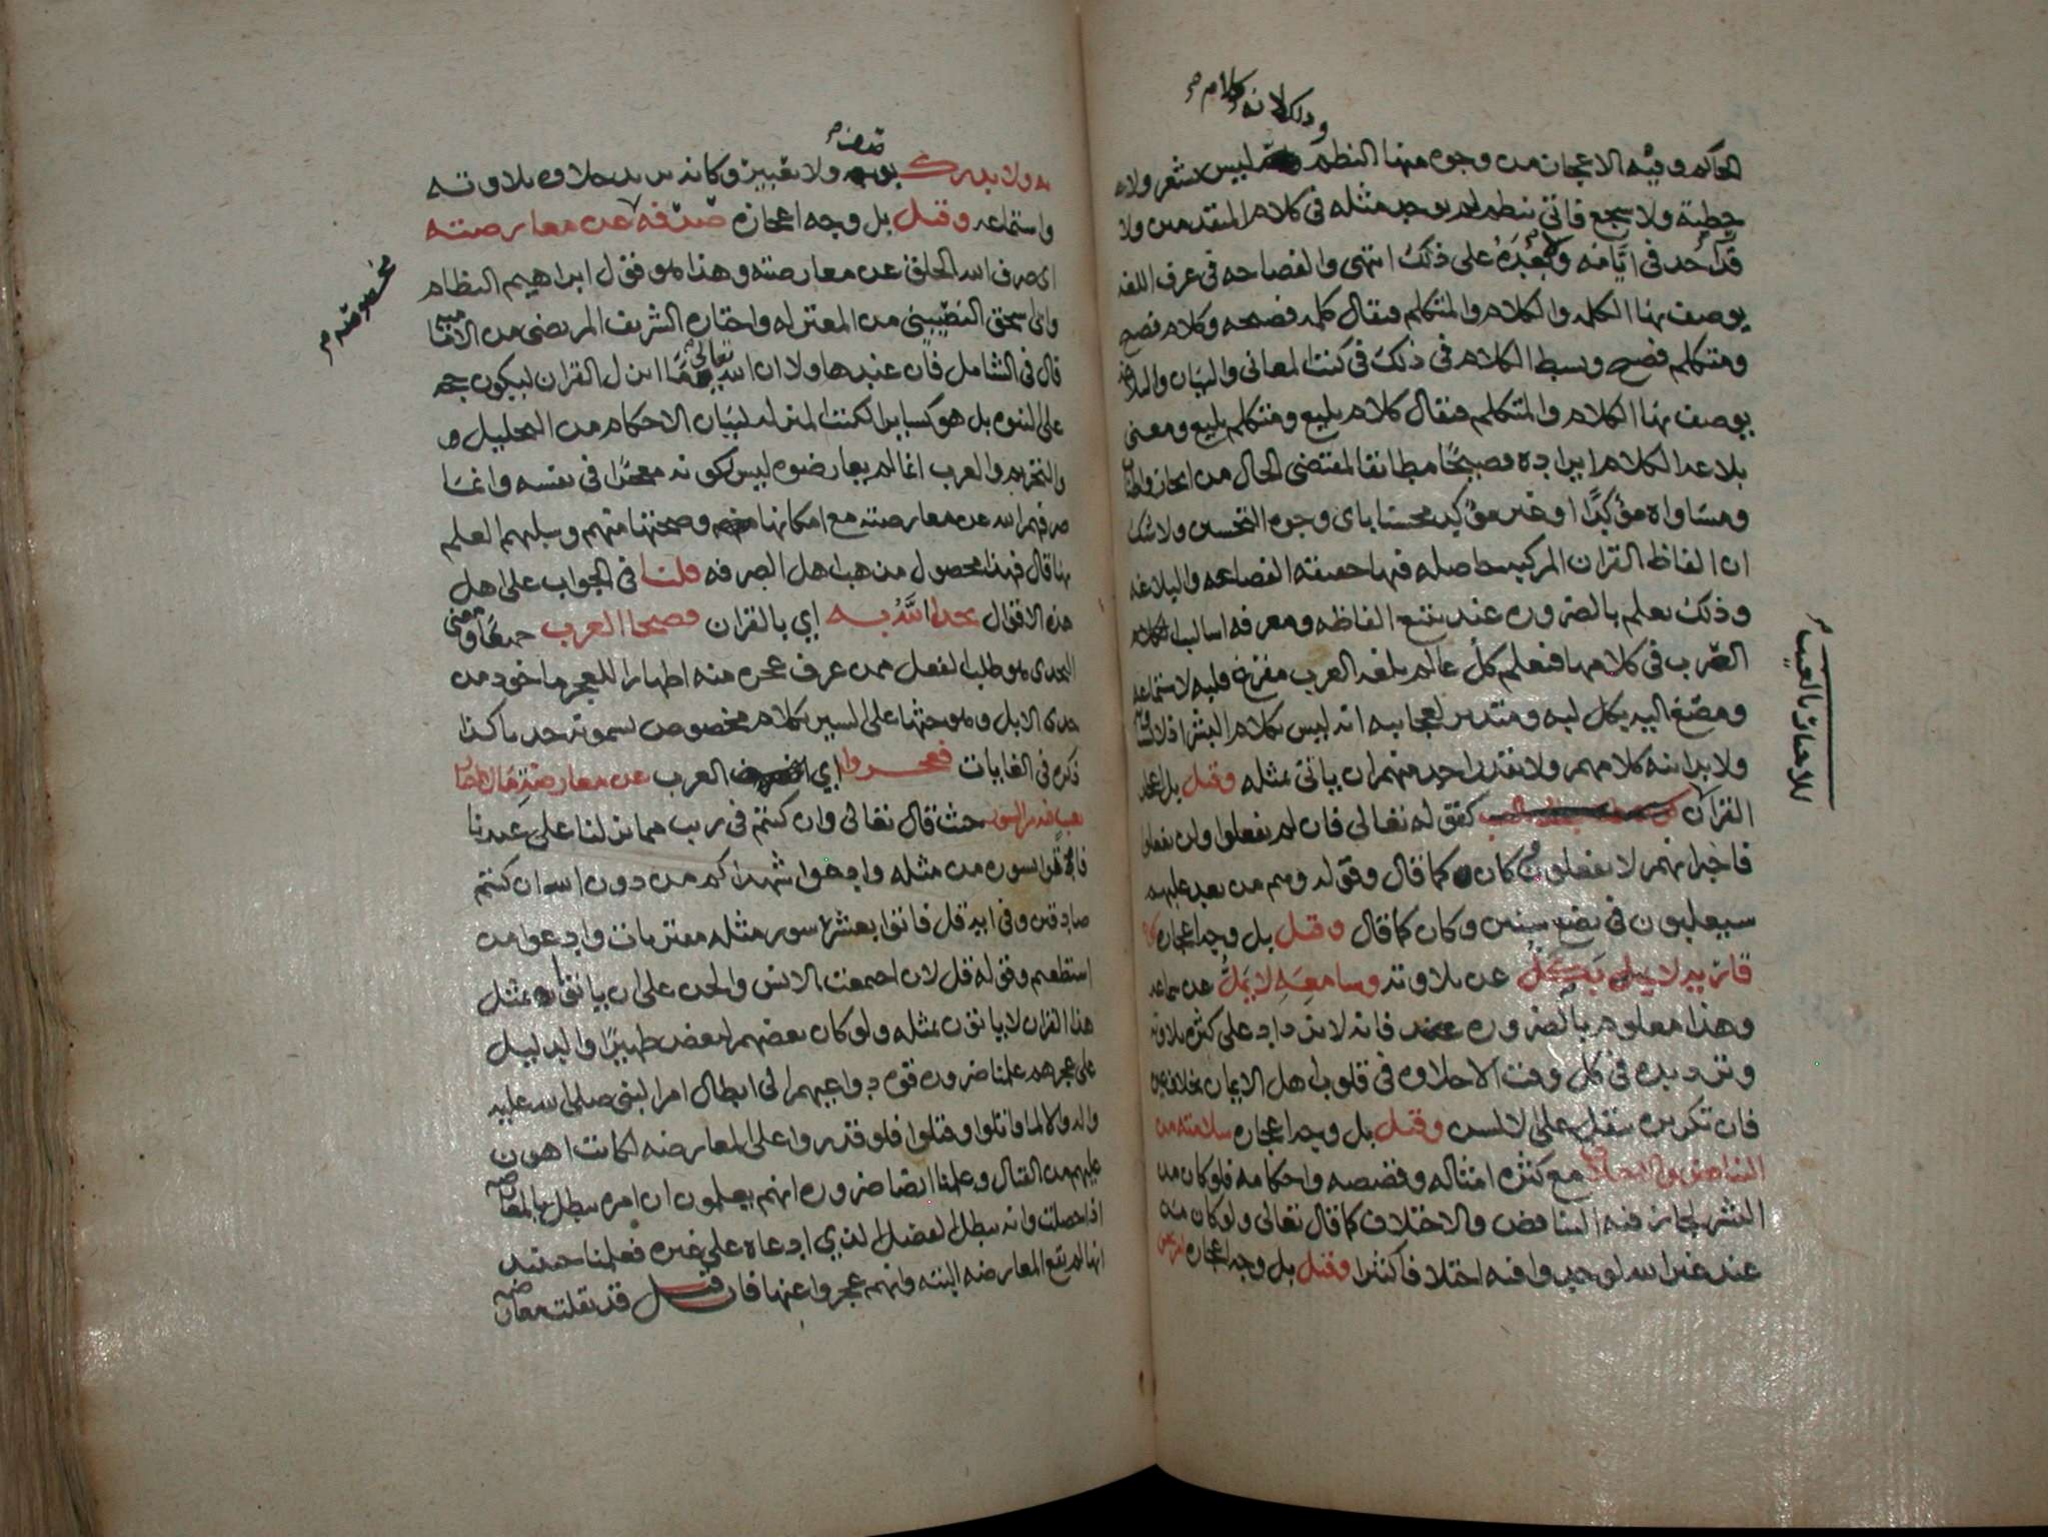 وذلك لانه كلام
الحاكم وفيه الاعجاز من وجوه منها النظم ليس بشعر ولا
خطبة ولا سجع فاتى بنظم لم يوجد مثله في كلام المتقدمين ولا
قدر احد في ايامه ولا بعده على ذلك انتهى والفصاحه في عرف اللغه
يوصف بها الكلمه والكلام والمتكلم فيقال كلمه فصيحه وكلام فصيح
ومتكلم فصيح وبسط الكلام في ذلك في كتب المعاني والبيان والبلاغه
يوصف بها الكلام والمتكلم فيقال كلام بليغ ومتكلم بليغ ومعنى
بلاغه الكلام ايراده فصيحًا مطابقا لمقتضى الحال من ايجاز واطناب
ومساواه مؤكدًا او غير مؤكد محسنا باي وجوه التحسين ولا شك
ان الفاظ القران المركبه حاصله فيها حقيقه الفصاحه والبلاغه
وذلك يعلم بالضروره عند تتبع الفاظه ومعرفه اساليب كلام
العرب في كلامها فيعلم كل عالم بلغه العرب مفرغ قلبه لاستماعه
ومصغ اليه بكل لبه ومتدبر لعجايبه انه ليس بكلام البشر اذ لا
ولا يدانيه كلامهم ولا يقدر احد منهم ان ياتي بمثله وقيل بل اعجاز
القران كقوله تعالى فان لم تفعلوا ولن تفعلوا
فاخبر انهم لا يفعلون وكان كما قال وقوله وهم من بعد غلبهم
سيغلبون في بضع سنين وكان كما قال وقيل بل وجه اعجازه كون
قارئه لا يَكِلُّ عن تلاوته وسامعِهِ لا يَمَلُّ عن سماعه
وهذا معلوم بالضروره فانه لا يزداد على كثره تلاوته
وترديده في كل وقت الا حلاوه في قلوب اهل الايمان بخلاف غيره
فان تكريره يثقل على الالسن وقيل بل وجه اعجازه سلامته من
التناقض والاختلاف مع كثره امثاله وقصصه واحكامه فلو كان من
البشر لجاز فيه التناقض والاختلاف كما قال تعالى ولو كان من
عند غير الله لوجدوا فيه اختلافا كثيرا وقيل بل وجه اعجازه امر يحس
للاخبار بالغيب
به ولا يدرك بوصف ولا تعبير وكانه يريد حلاوه تلاوته
واستماعه وقيل بل وجه اعجازه صَرْفه عن معارضته
اي صرف الله الخلق عن معارضته وهذا هو قول ابراهيم النظام
وابي اسحق النصيبيني من المعتزله واختاره الشريف المرتضى من الاماميه
قال في الشامل فان عند هاولا ان الله تعالى ما انزل القران ليكون حجه
على النبوه بل هو كساير الكتب المنزله لبيان الاحكام من التحليل و
والتحريم والعرب انما لم يعارضوه ليس لكونه معجزًا في نفسه وانما
صرفهم الله عن معارضته مع امكانها وصحتها منهم وسلبهم العلم
بها قال فهذا محصول مذهب اهل الصرفه قلنا في الجواب على اهل
هذه الاقوال تحدا اللَّهُ به اي بالقران فصحا العرب جميعًا ومعنى
التحدي هو طلب الفعل ممن عرف عجزه منه اظهارا للعجز ماخوذ من
حدى الابل وهو حثها على السير بكلام مخصوص نسموته حدى هكذا
ذكره في الغايات فعجزوا اي العرب عن معارضةِ
حيث قال تعالى وان كنتم في ريب مما نزلنا على عبدنا
فاتوا بسوره من مثله وادعوا شهداكم من دون الله ان كنتم
صادقين وفي ايه قل فاتوا بعشر سور مثله مفتريات وادعوا من
استطعتم وقوله قل لان اجتمعت الانس والجن على ان ياتوا بمثل
هذا القران لا ياتون بمثله ولو كان بعضهم لبعض ظهيرًا والدليل
على عجزهم علمنا ضروره قوه دواعيهم الى ابطال امر النبي صلى الله عليه
واله والا لما قاتلوا وقتلوا فلو قدروا على المعارضه لكانت اهون
عليهم من القتال وعلمنا ايضا ضروره انهم يعلمون ان امره يبطل بالمعارضه
اذا حصلت وانه يبطل الفضل الذي ادعاه على غيره فعلمنا حينيذ
انها لم تقع المعارضه البته وانهم عجزوا عنها فان قيل قد نقلت معارضه